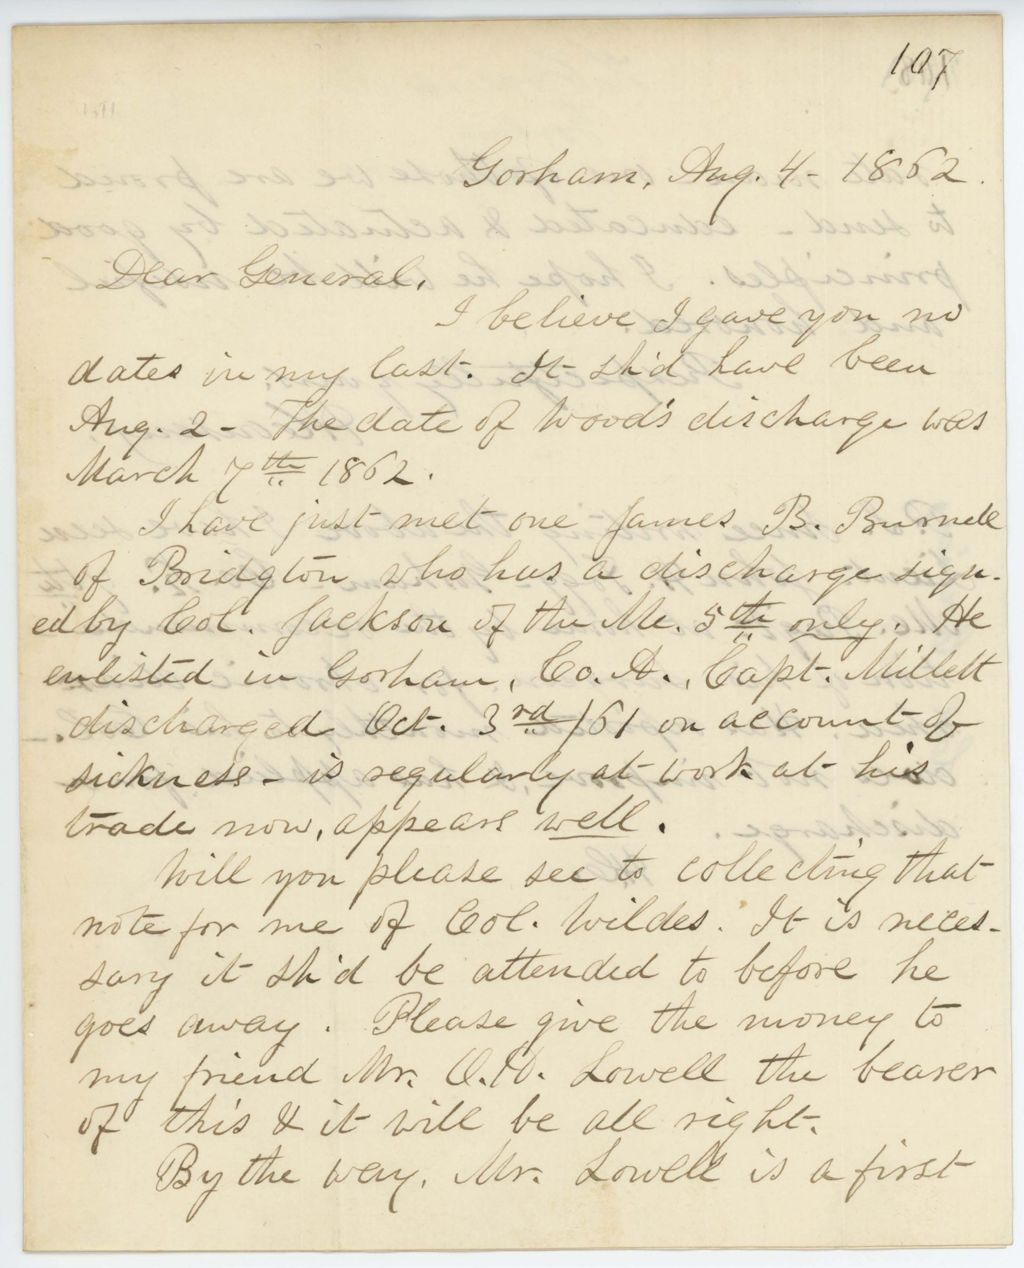 107
Gorham, Aug. 4 - 1862.
Dear General,
I believe I gave you no
dates in my last. It sh'd have been
Aug. 2 - The date of Wood's discharge was
March 7th 1862.
I have just met one James B. Burnell
of Bridgton who has a discharge sign-
ed by Col. Jackson of the Me. 5th only. He
enlisted in Gorham, Co. A., Capt. Millett
discharged Oct. 3rd /61 on account of
sickness - is regularly at work at his
trade now, appears well.
Will you please see to collecting that
note for me of Col. Wildes. It is neces-
sary it sh'd be attended to before he
goes away. Please give the money to
my friend Mr. O.H. Lowell the bearer
of this & it will be all right.
By the way, Mr. Lowell is a first